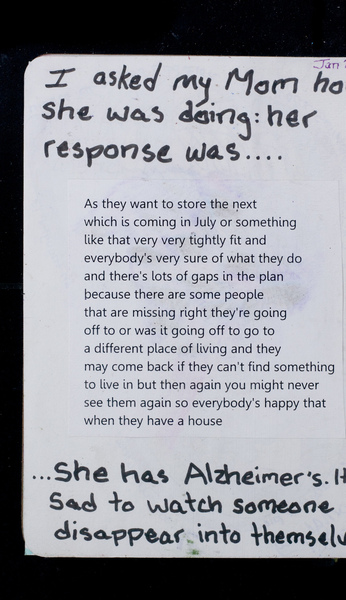 Jan
I asked my Mom ho
she was doing: her
response was....
As they want to store the next
which is coming in July or something
like that very very tightly fit and
everybody's very sure of what they do
and there's lots of gaps in the plan
because there are some people
that are missing right they're going
off to or was it going off to go to
a different place of living and they
may come back if they can't find something
to live in but then again you might never
see them again so everybody's happy that
when they have a house
...She has Alzheimer's. It
Sad to watch someone
disappear into themselv